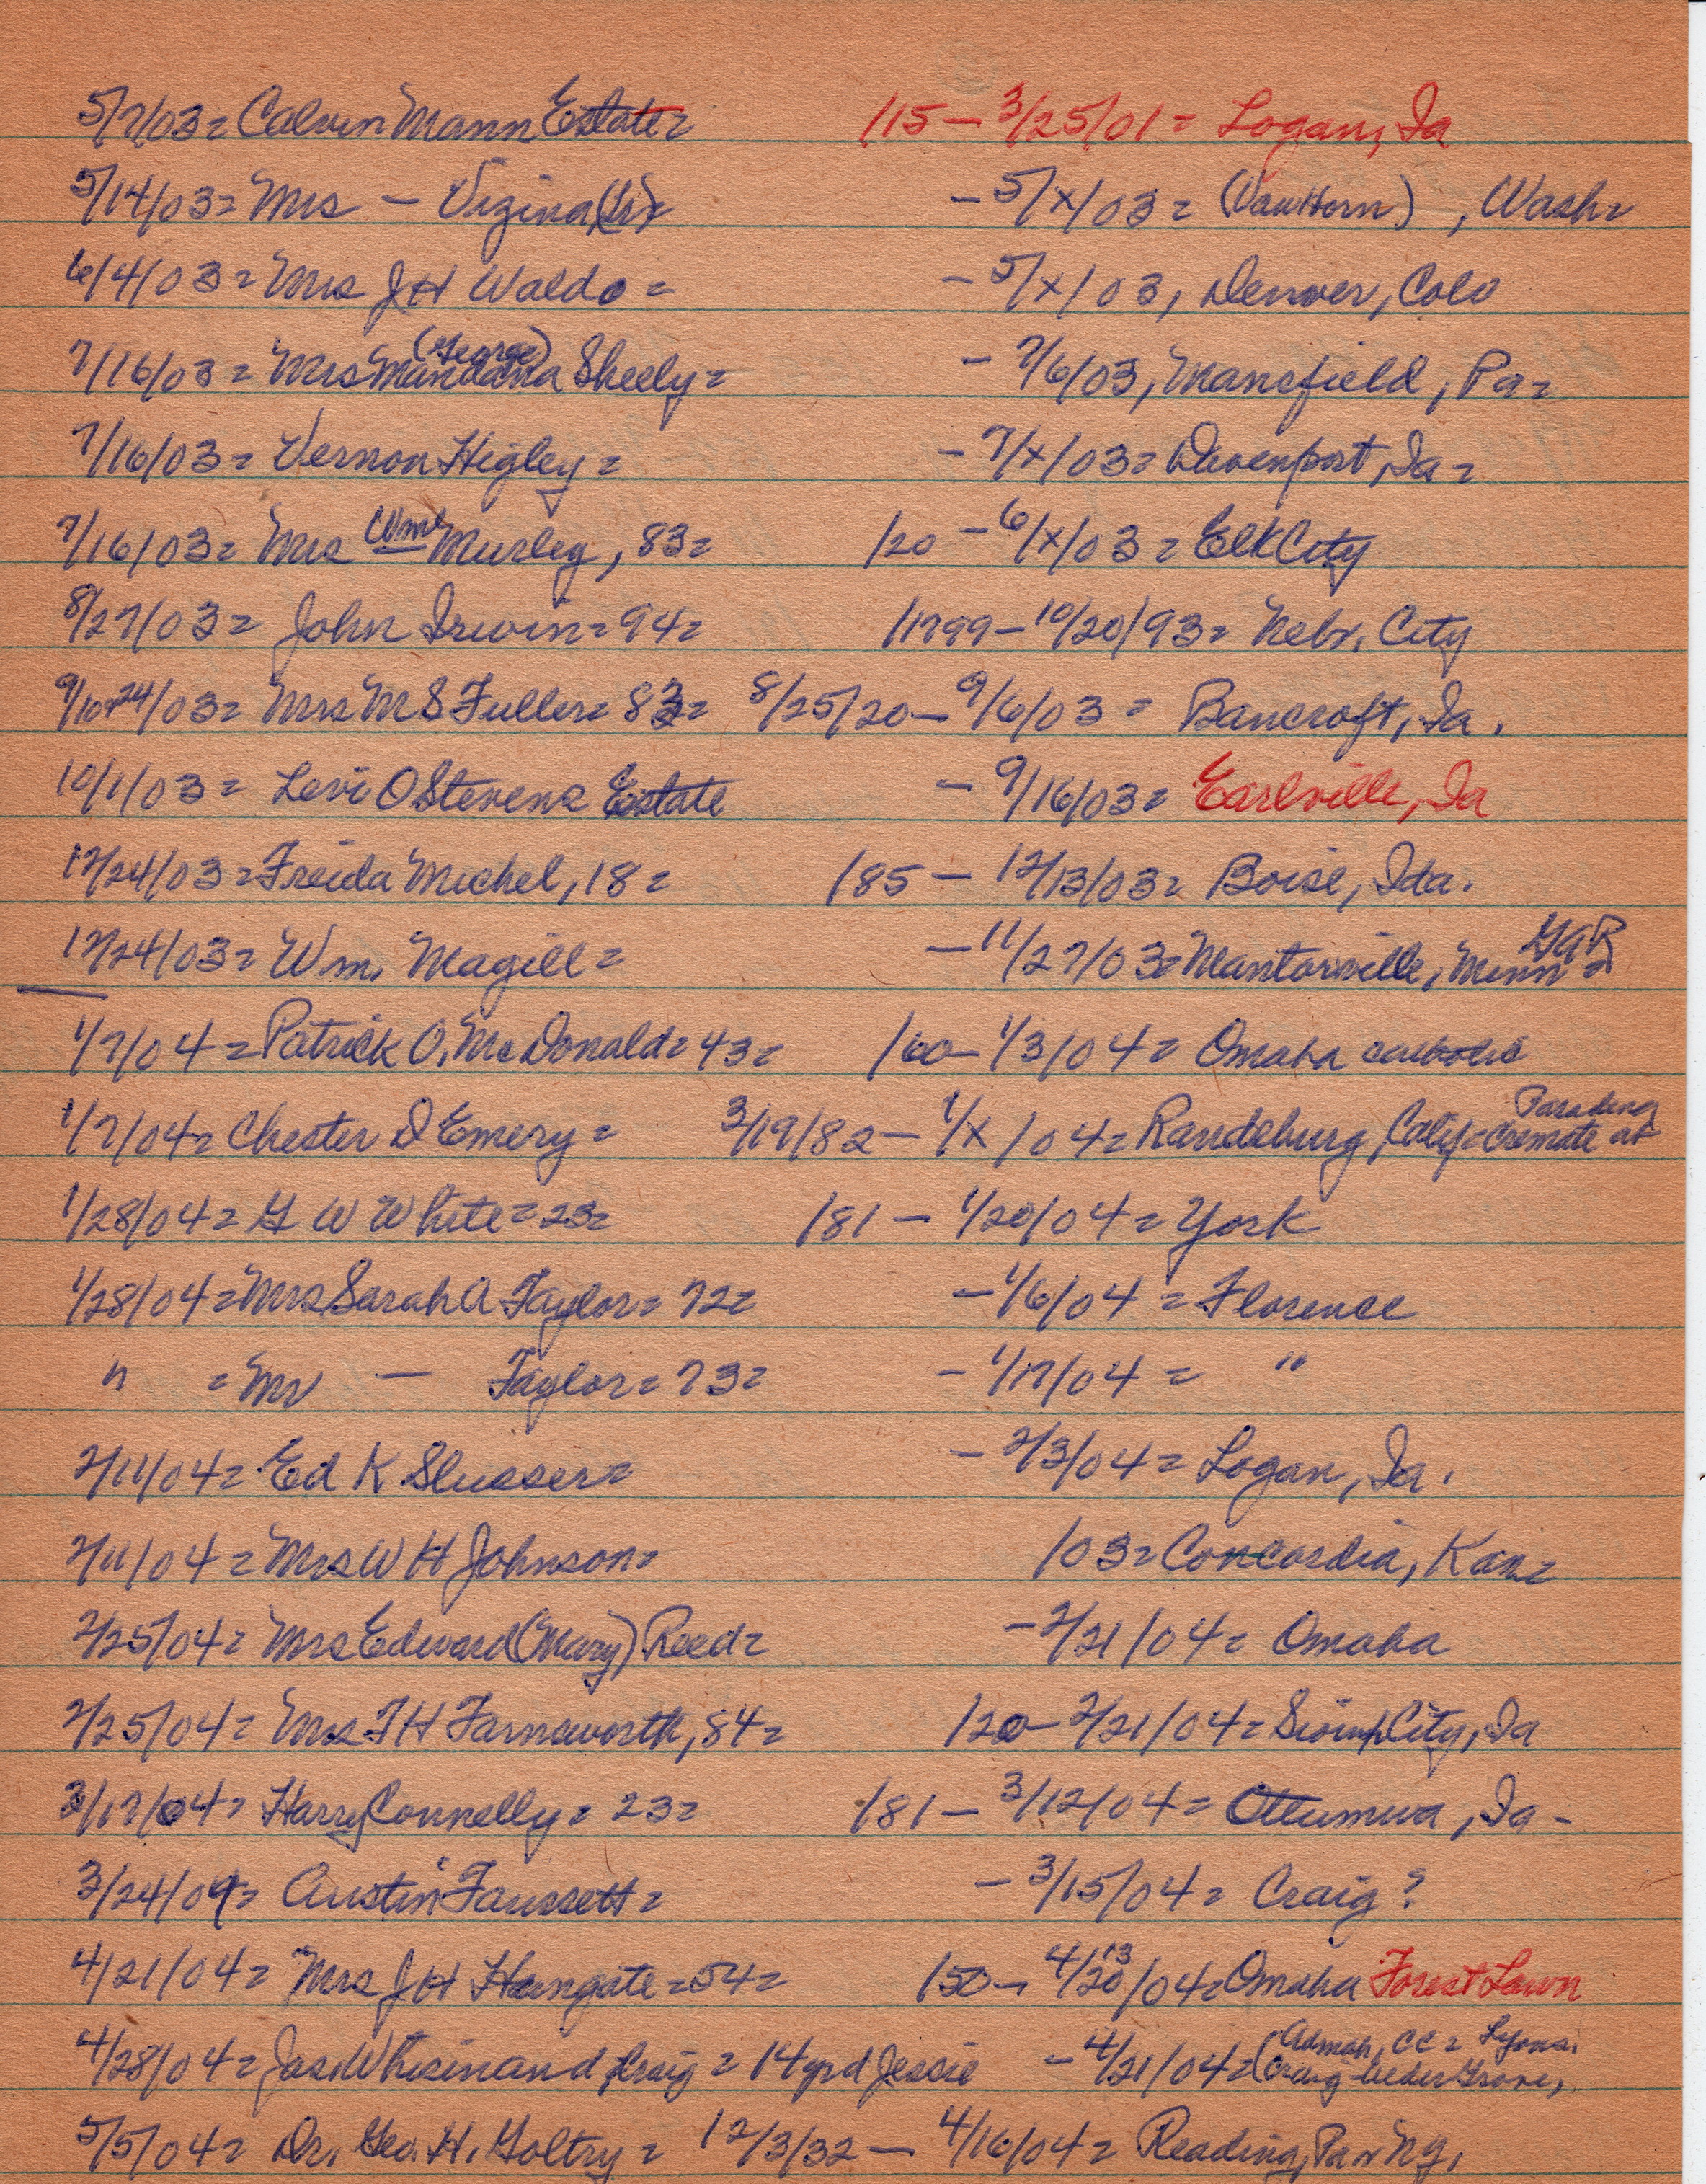 5/7/03= Calvin Mann Estate= /15 – 3/25/01 = Logan, Ia
5/14/03= Mrs – Vizina(Sr) – 5/x/03 = (VanHorn) , Wash=
6/4/03 = Mrs J H Waldo = – 5/x/03, Denver, Colo
7/16/03 = Mrs Mandana (George) Sheely= – 7/6/03, Mansfield, Pa=
7/16/03= Vernon Higley = – 7/x/03= Davenport, Ia =
7/16/03= Mrs Wm Murley, 83= /20 – 6/x/03 = Elk City
8/27/03= John Irwin= 94= /1799 – 10/20/93= Nebr. City
9/10+24/03= Mrs M S Fuller= 83= 8/25/20 – 9/6/03 = Bancroft, Ia.
10/1/03= Levi O Stevens Estate – 9/16/03= Earlville, Ia
12/24/03=Freida Michel, 18= /85 – 12/13/03= Boise, Ida.
12/24/03= Wm. Magill= – 11/27/03=Mantorville, Minn= GAR
1/7/04=Patrick O. McDonald= 43= /60 – 1/3/04= Omaha catholic
1/7/04= Chester D Emery = 3/19/82 – 1/x/04= Randsburg, Calif= cremate at Pasadena
1/28/04= G W White= 23= /81 – 1/20/04= York
1/28/04=Mrs Sarah A Taylor= 72= – 1/6/04 = Florence
" = Mr — Taylor= 73= – 1/17/04 = "
2/11/04= Ed K Slusser= – 2/3/04 = Logan, Ia.
2/11/04 = Mrs W H Johnson= /03= Concordia, Kan=
2/25/04= Mrs Edward (Mary) Reed= – 2/21/04= Omaha
2/25/04= Mrs F H Farnsworth, 84= /20 – 2/21/04= Sioux City, Ia
3/17/04= Harry Connelly= 23= /81 – 3/12/04= Ottumwa, Ia –
3/24/04= Austin Faussett= – 3/15/04= Craig ?
4/21/04= Mrs J H Hungate=54= /50 – 4/20 13/04=Omaha Forest Lawn
4/28/04= Jas Whisinand, Craig = 14yr d Jessie – 4/21/04=(Admah, CC= Lyons, Craig-Cedar Grove,
5/5/04= Dr. Geo. H. Goltry= 12/3/32 – 4/16/04= Reading, Pa